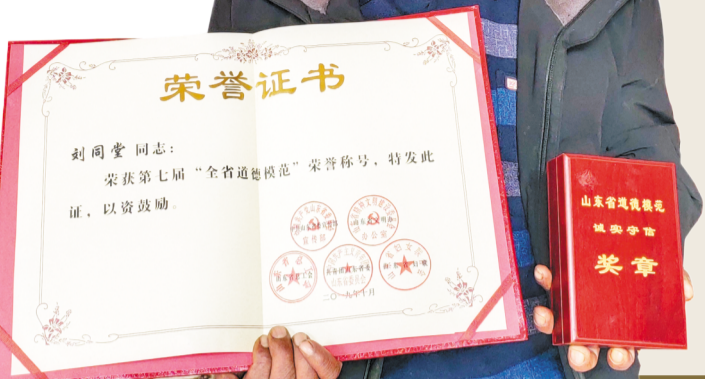 荣誉证书
刘同堂 同志：
荣获第七届“全省道德模范”荣誉称号，特发此
证，以资鼓励。
二〇一九年十月
山东省道德模范
诚实守信
奖章